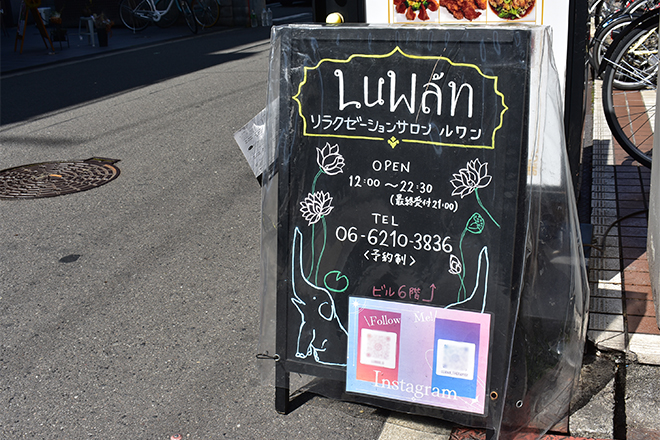 LuWลัก
リラクゼーションサロン ルワン
OPEN
12:00〜22:30
(最終受付21:00)
TEL
06-6210-3836
<予約制>
ビル6階↑
\Follow Me!/
Instagram